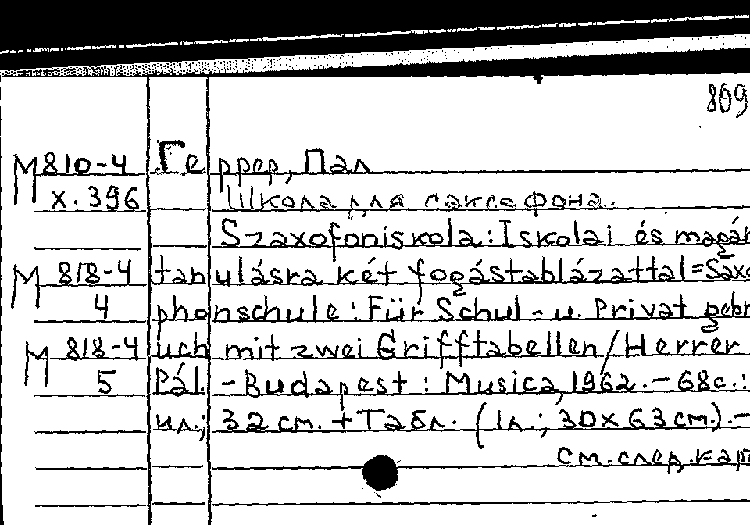 809
М 810-4 Геррер, Пал
х.396 Школа для саксофона.
Szaxofoniskola: Iskolai és magán
М 818-4 tanulásra két fogástáblázattal=Saxo
4 phonschule: Für Schul- u. Privat gebr
М 818-4 uch mit zwei Grifftabellen/Herrer
5 Pál. - Budapest: Musica, 1962. - 68с.:
ил.; 32 см. + Табл. (1л.; 30х63см). -
См. след. кар